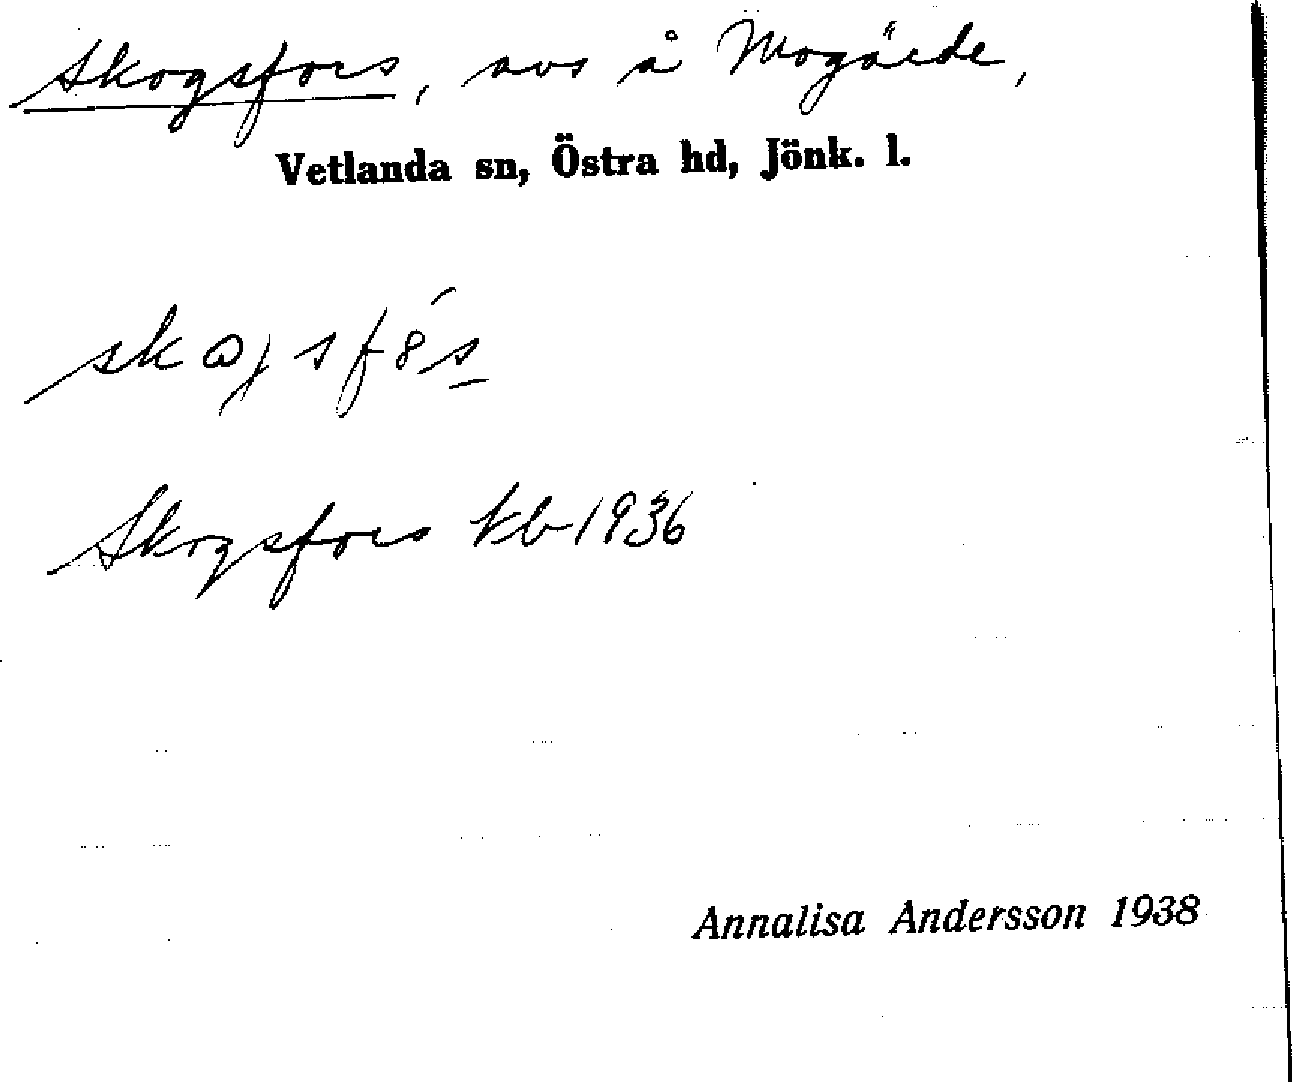 Skogsfors, avs å Mogärde,
Vetlanda sn, Östra hd, Jönk. l.
Skogsfors kb 1936
Annalisa Andersson 1938